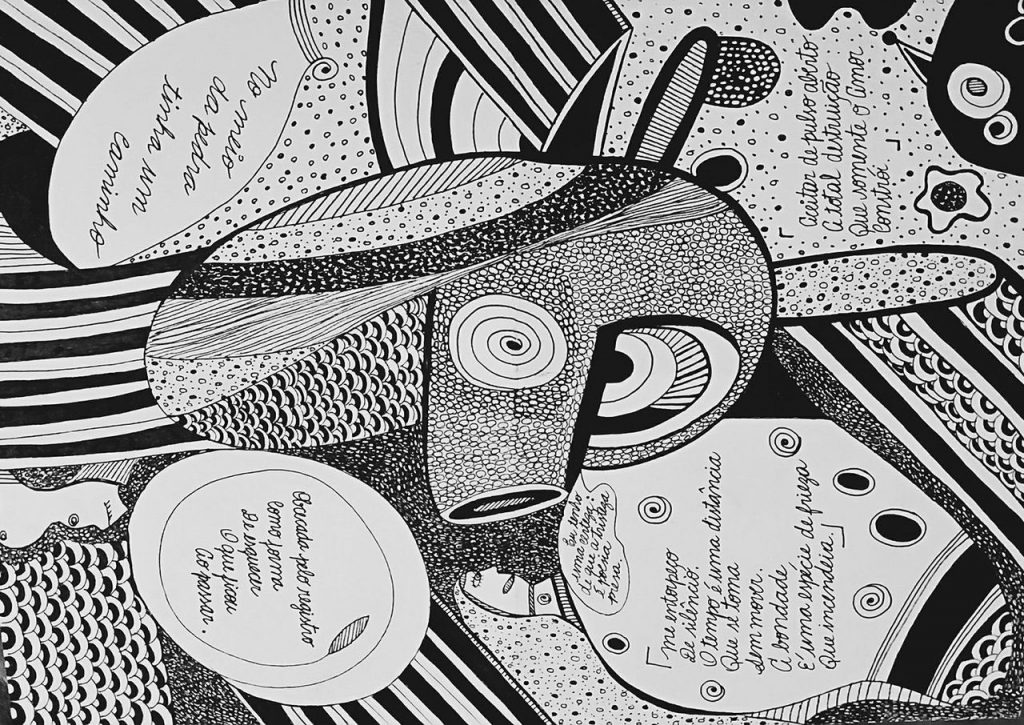 No meio
da pedra
tinha um
Caminho
「Aceitar de pulso aberto
A total destruição
Que somente o Amor
Constrói. 」
pelo registro
Como forma
De esquecer
O que ficou
Ao passar.
Eu sonho
que a tristeza
「me entorpeço
De silêncio.
O tempo é uma distância
Que se toma
Sem mover.
A bondade
É uma espécie de frieza
Que incendeia.」